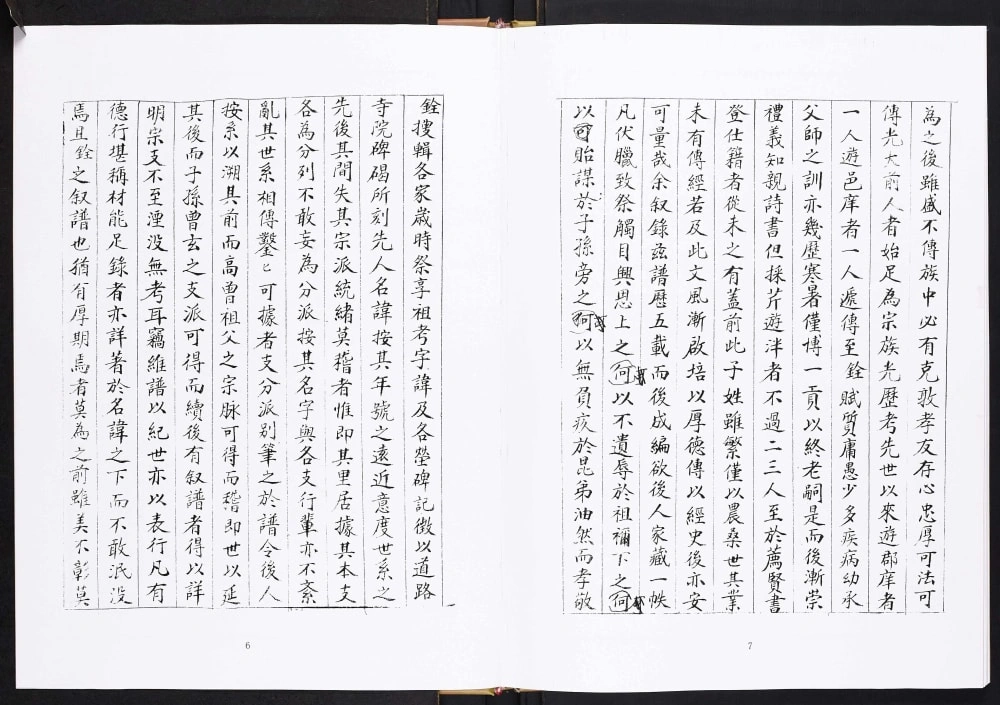 銓搜輯各家歲時祭享祖考字諱及各塋碑記徵以道路
寺院碑碣所刻先人名諱按其年號之遠近意度世系之
先後其間失其宗派統緒莫稽者惟即其里居據其本支
各為分列不敢妄為分派按其名字與各支行輩亦不紊
亂其世系相傳鑿〻可據者支分派別筆之於譜令後人
按系以溯其前而高曾祖父之宗脉可得而稽即世以延
其後而子孫曾玄之支派可得而續後有叙譜者得以詳
明宗支不至湮没無考耳竊維譜以紀世亦以表行凡有
德行堪稱材能足錄者亦詳著於名諱之下而不敢泯没
焉且銓之叙譜也猶有厚期焉者莫為之前雖美不彰莫
6
為之後雖盛不傳族中必有克敦孝友存心忠厚可法可
傳光大前人者始足為宗族光歷考先世以來遊郡庠者
一人遊邑庠者一人遞傳至銓賦質庸愚少多疾病幼承
父師之訓亦幾歷寒暑僅博一貢以終老嗣是而後漸崇
禮義知親詩書但採芹遊泮者不過二三人至於薦賢書
登仕籍者從未之有蓋前此子姓雖繁僅以農桑世其業
未有傳經若及此文風漸啟培以厚德傳以經史後亦安
可量哉余叙錄茲譜歷五載而後成編欲後人家藏一帙
凡伏臘致祭觸目興思上之何以不遺辱於祖禰下之何
以可貽謀於子孫旁之何以無負疚於昆弟油然而孝敬
7